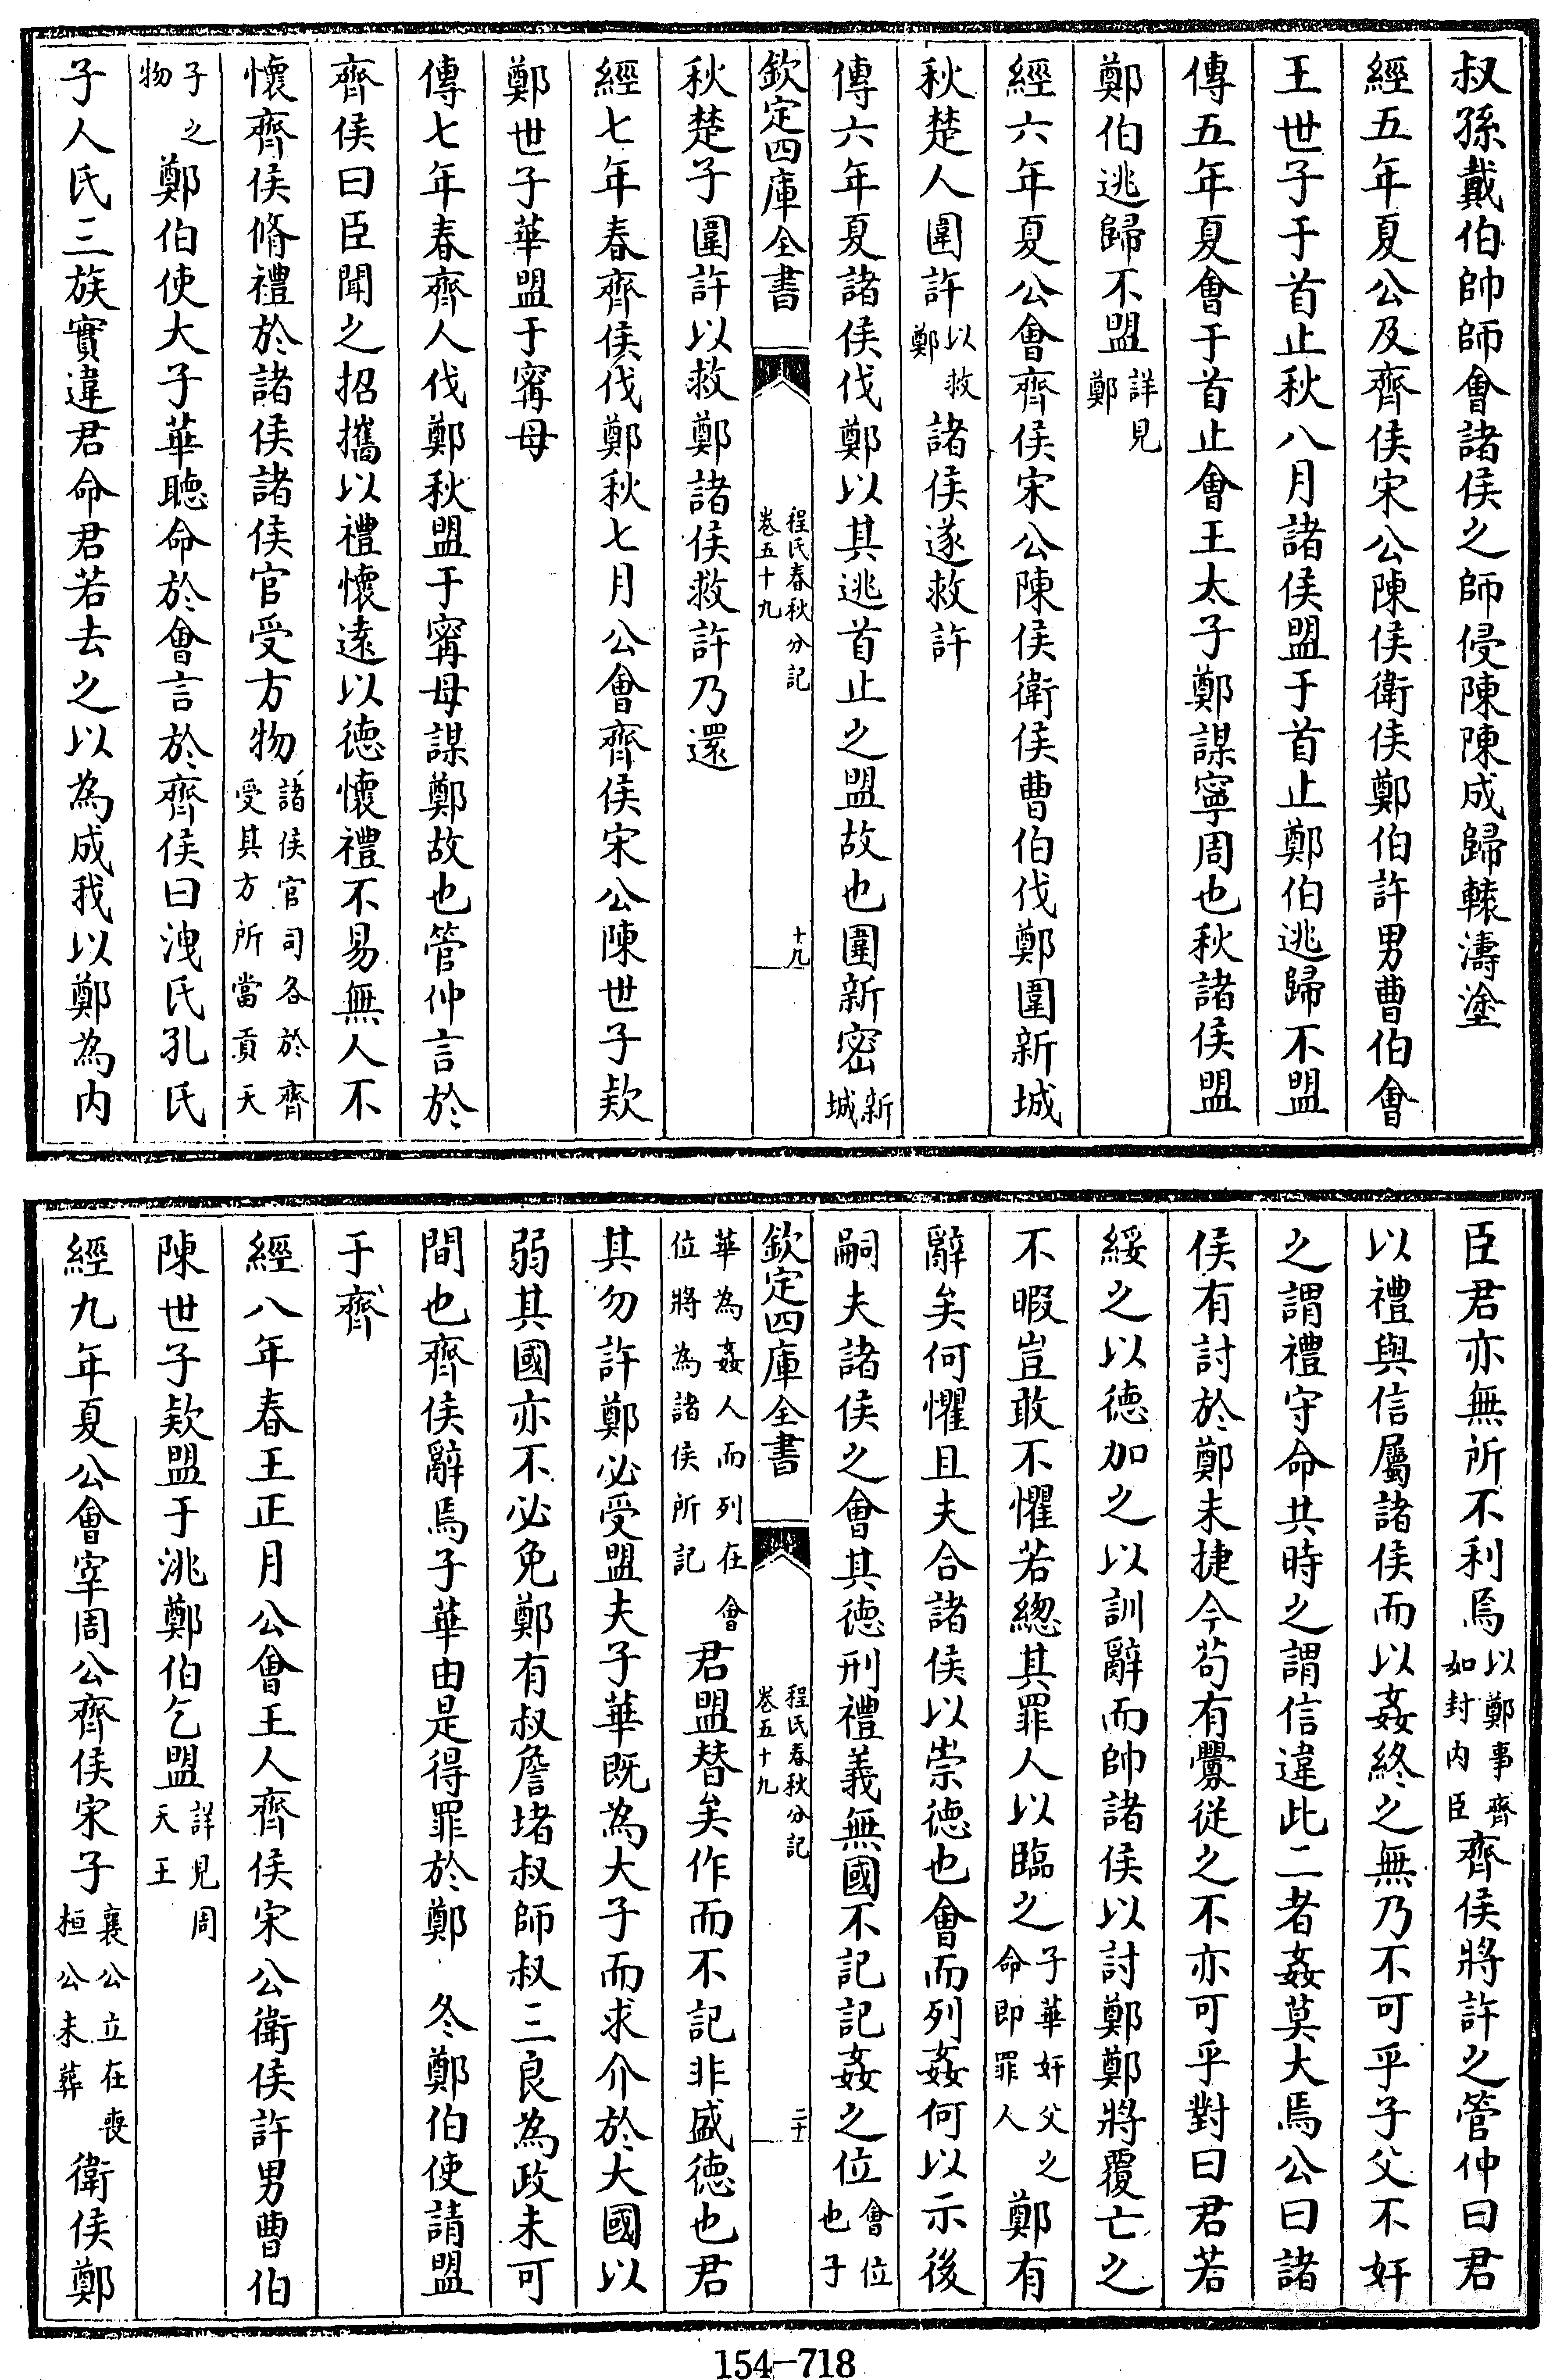 叔孫戴伯帥師會諸侯之師侵陳陳成歸轅濤塗
經五年夏公及齊侯宋公陳侯衛侯鄭伯許男曹伯會
王世子于首止秋八月諸侯盟于首止鄭伯逃歸不盟
傳五年夏會于首止會王太子鄭謀寧周也秋諸侯盟
鄭伯逃歸不盟詳見鄭
經六年夏公會齊侯宋公陳侯衛侯曹伯伐鄭圍新城
秋楚人圍許以救鄭諸侯遂救許
傳六年夏諸侯伐鄭以其逃首止之盟故也圍新密新城
欽定四庫全書 程氏春秋分記卷五十九 十九
秋楚子圍許以救鄭諸侯救許乃還
經七年春齊侯伐鄭秋七月公會齊侯宋公陳世子欵
鄭世子華盟于甯母
傳七年春齊人伐鄭秋盟于甯母謀鄭故也管仲言於
齊侯曰臣聞之招攜以禮懷逺以德懷禮不易無人不
懷齊侯脩禮於諸侯諸侯官受方物諸侯官司各於齊受其方所當貢天
子之物鄭伯使大子華聽命於會言於齊侯曰洩氏孔氏
子人氏三族實違君命君若去之以為成我以鄭為内
臣君亦無所不利焉以鄭事齊如封内臣齊侯將許之管仲曰君
以禮與信屬諸侯而以姦終之無乃不可乎子父不奸
之謂禮守命共時之謂信違此二者姦莫大焉公曰諸
侯有討於鄭未捷今茍有釁從之不亦可乎對曰君若
綏之以德加之以訓辭而帥諸侯以討鄭鄭將覆亡之
不暇豈敢不懼若緫其罪人以臨之子華奸父之命即罪人鄭有
辭矣何懼且夫合諸侯以崇德也會而列姦何以示後
嗣夫諸侯之會其德刑禮義無國不記記姦之位會位也子
欽定四庫全書 程氏春秋分記卷五十九 二十
華為姦人而列在會位將為諸侯所記君盟替矣作而不記非盛德也君
其勿許鄭必受盟夫子華既為大子而求介於大國以
弱其國亦不必免鄭有叔詹堵叔師叔三良為政未可
間也齊侯辭焉子華由是得罪於鄭 冬鄭伯使請盟
于齊
經八年春王正月公會王人齊侯宋公衛侯許男曹伯
陳世子欵盟于洮鄭伯乞盟詳見周天王
經九年夏公會宰周公齊侯宋子襄公立在喪桓公未葬衛侯鄭
154-718